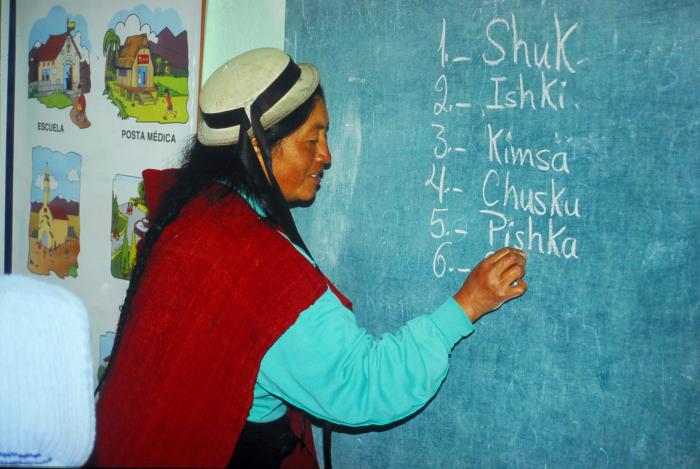 ESCUELA
POSTA MÉDICA
1.- Shuk
2.- Ishki.
3.- Kimsa
4.- Chusku
5.- Pishka
6.-